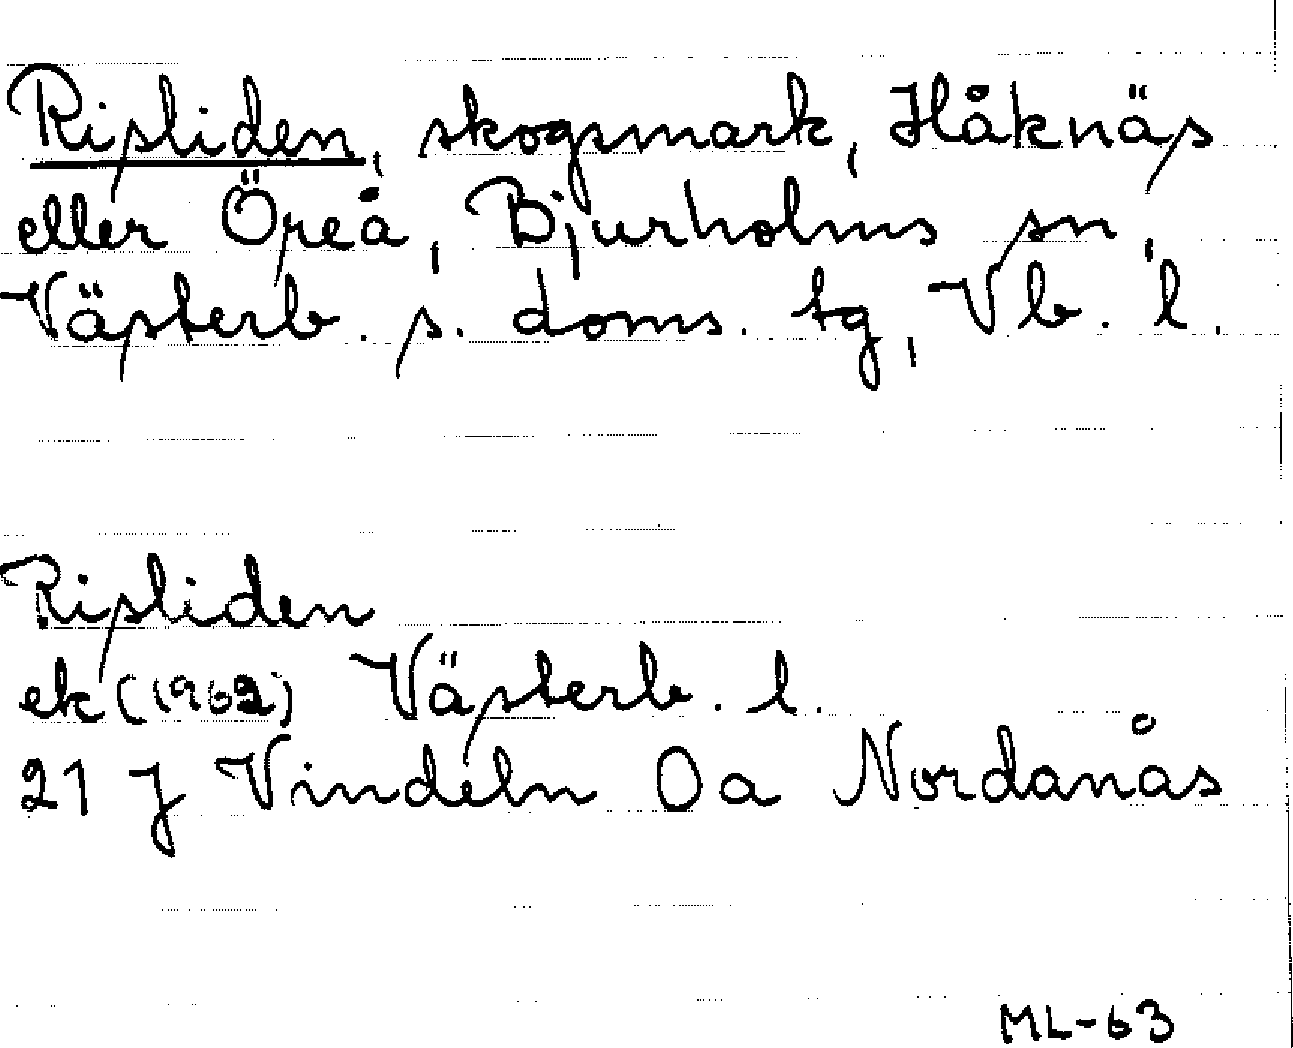 Risliden, skogsmark, Håknäs
eller Öreå, Bjurholms sn,
Västerb. s. doms. tg, Vb. l.
Risliden
ek (1962) Västerb. l.
21 J Vindeln 0a Nordanås
ML-63